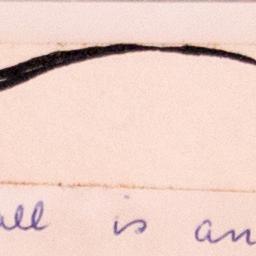 all is an